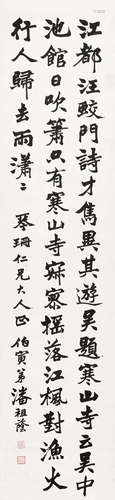 江都汪蛟門詩才雋異其遊吳題寒山寺云吳中
池館日吹簫只有寒山寺寂寥搖落江楓對漁火
行人歸去雨瀟〻
琴珊仁兄大人正 伯寅弟潘祖蔭